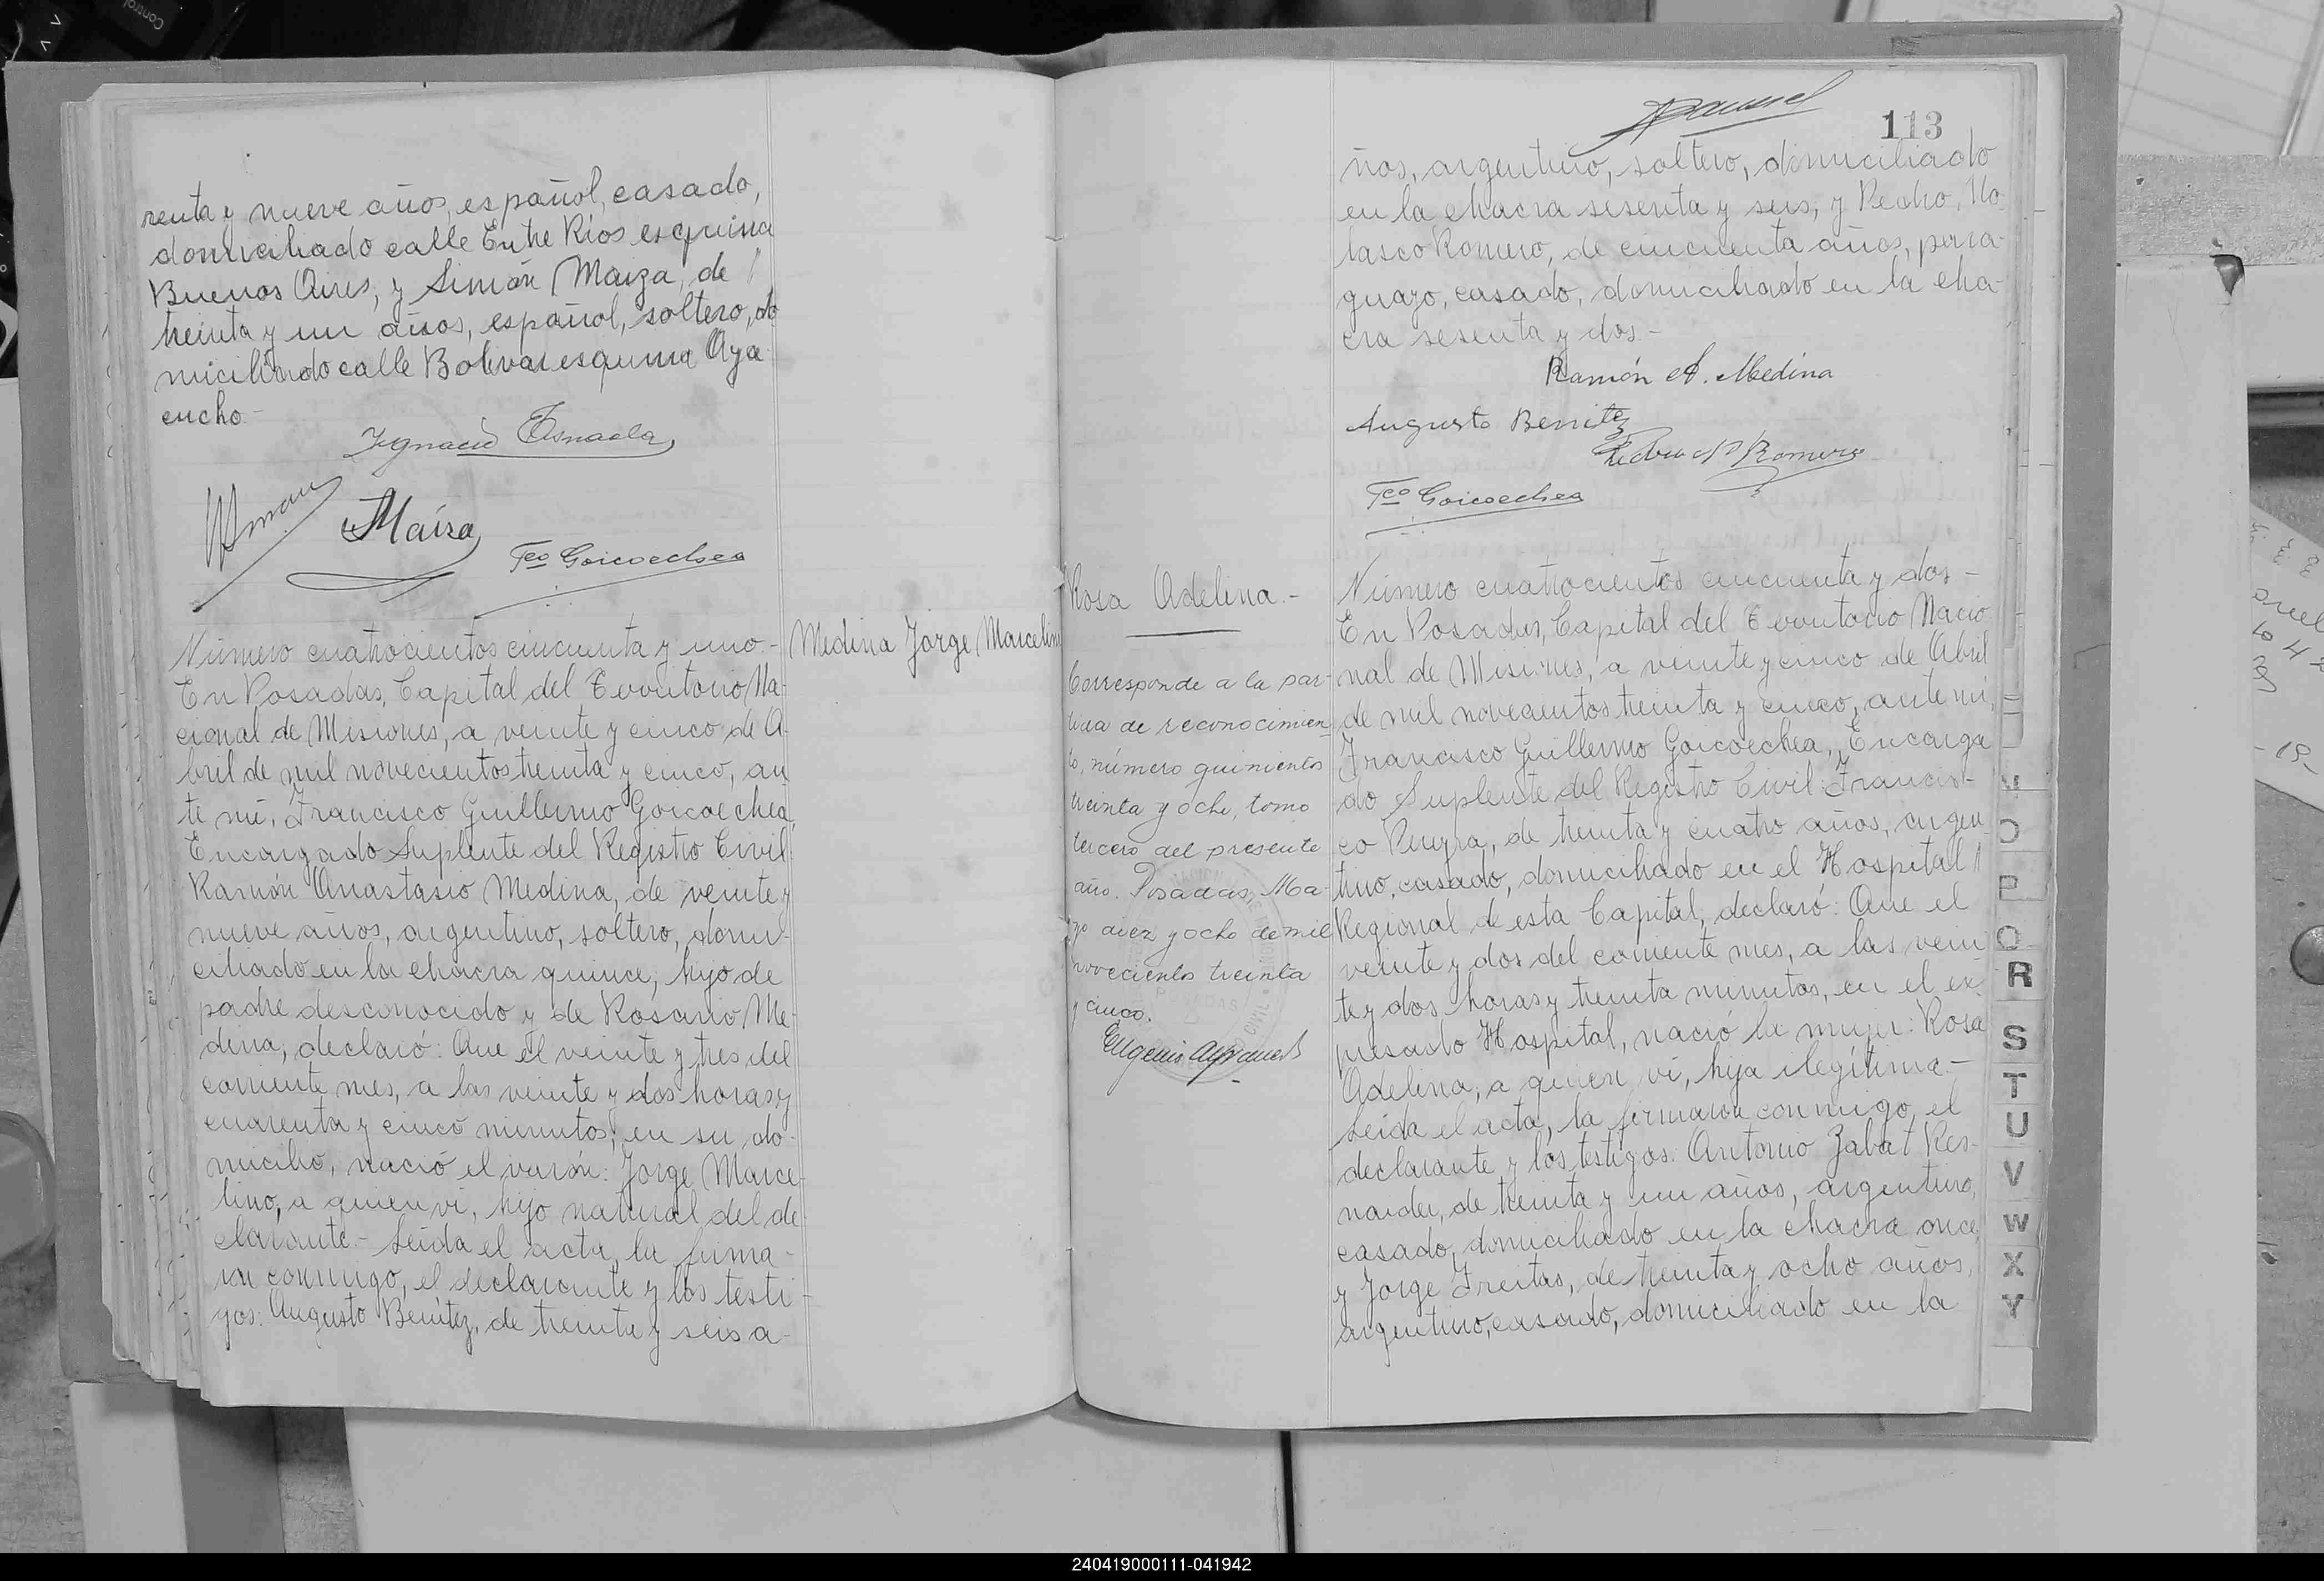 renta y nueve años, español, casado,
domiciliado calle Entre Ríos esquina
Buenos Aires, y Simón Maiza, de
treinta y un años, español, soltero, do
miciliado calle Bolivar esquina Aya
cucho-
Ignacio
Simon Maiza
Fco Goicoechea
Número cuatrocientos cincuenta y uno.-
En Posadas, Capital del Territorio Na-
cional de Misiones, a veinte y cinco de A-
bril de mil novecientos treinta y cinco, an
te mí, Francisco Guillermo Goicoechea,
Encargado Suplente del Registro Civil:
Ramón Anastasio Medina, de veinte y
nueve años, argentino, soltero, domi-
ciliado en la chacra quince, hijo de
padre desconocido y de Rosario Me-
dina, declaró: Que el veinte y tres del
corriente mes, a las veinte y dos horas y
cuarenta y cinco minutos, en su do-
micilio, nació el varón: Jorge Marce-
lino, a quien vi, hijo natural del de-
clarante.- Leída el acta, la firma-
ron conmigo, el declarante y los testi-
gos: Augusto Benítez, de treinta y seis a-
Medina Jorge Marcelino
113
ños, argentino, soltero, domiciliado
en la chacra sesenta y seis, y Pedro No
lasco Romero, de cincuenta años, para-
guayo, casado, domiciliado en la cha-
cra sesenta y dos.-
Ramón A. Medina
Augusto Benitez
Pedro N Romero
Fco Goicoechea
Rosa Adelina.-
Corresponde a la par-
tida de reconocimien
to, número quinientos
treinta y ocho, tomo
tercero del presente
año. Posadas, Ma-
yo diez y ocho de mil
novecientos treinta
y cinco.
Número cuatrocientos cincuenta y dos-
En Posadas, Capital del Territorio Nacio
nal de Misiones, a veinte y cinco de Abril
de mil novecientos treinta y cinco, ante mí,
Francisco Guillermo Goicoechea, Encarga
do Suplente del Registro Civil: Francis-
co Pereyra, de treinta y cuatro años, argen
tino, casado, domiciliado en el Hospital
Regional de esta Capital, declaró: Que el
veinte y dos del corriente mes, a las vein
te y dos horas y treinta minutos, en el ex
presado Hospital, nació la mujer: Rosa
Adelina, a quien vi, hija ilegítima.-
Leída el acta, la firmaron conmigo, el
declarante y los testigos: Antonio Zabat Res-
de treinta y un años, argentino,
casado, domiciliado en la chacra once,
y Jorge Freitas, de treinta y ocho años,
argentino, casado, domiciliado en la
P
Q
R
S
T
U
V
W
X
Y
240419000111-041942